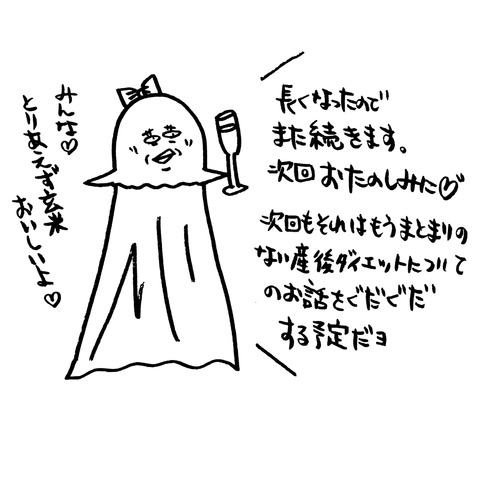 長くなったので
また続きます。
次回おたのしみに♡
次回もそれはもうまとまりの
ない産後ダイエットについて
のお話をぐだぐだ
する予定だョ
みんな♡
とりあえず玄米
おいしいよ♡